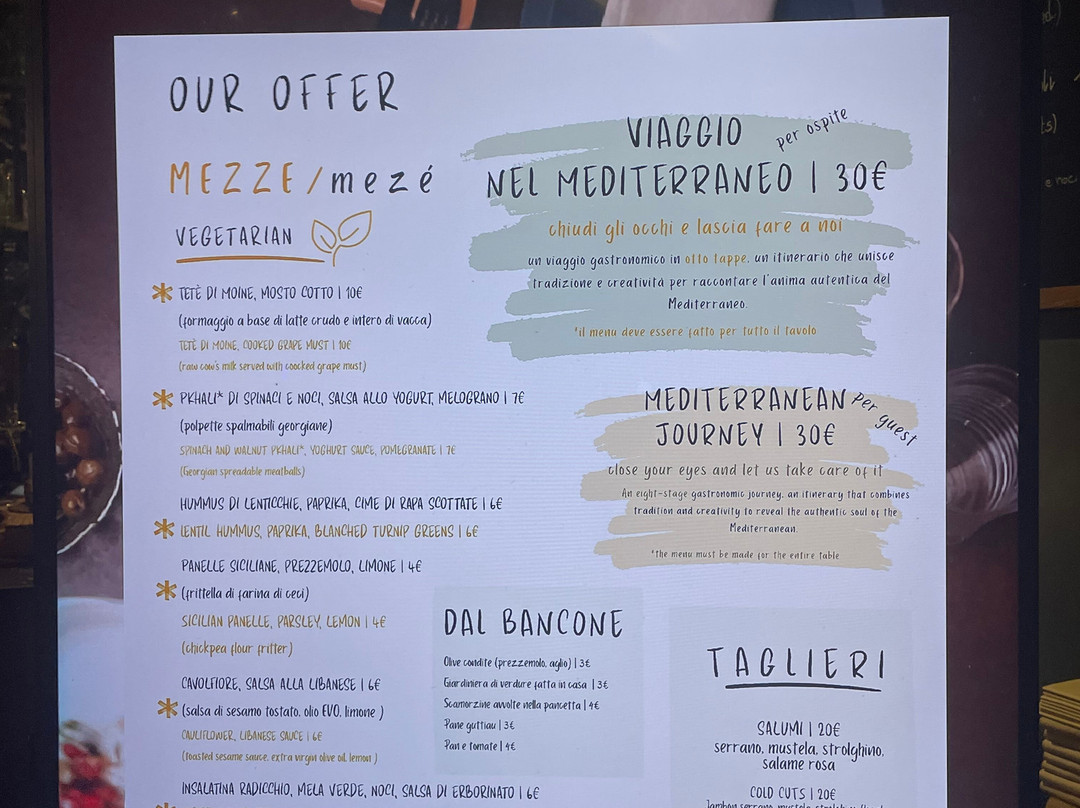 OUR OFFER
MEZZE/mezé
VEGETARIAN
* TETÈ DI MOINE, MOSTO COTTO | 10€
(formaggio a base di latte crudo e intero di vacca)
TETÈ DI MOINE, COOKED GRAPE MUST | 10€
(raw cow's milk served with coocked grape must)
* PKHALI* DI SPINACI E NOCI, SALSA ALLO YOGURT, MELOGRANO | 7€
(polpette spalmabili georgiane)
SPINACH AND WALNUT PKHALI*, YOGHURT SAUCE, POMEGRANATE | 7€
(Georgian spreadable meatballs)
HUMMUS DI LENTICCHIE, PAPRIKA, CIME DI RAPA SCOTTATE | 6€
* LENTIL HUMMUS, PAPRIKA, BLANCHED TURNIP GREENS | 6€
PANELLE SICILIANE, PREZZEMOLO, LIMONE | 4€
* (frittella di farina di ceci)
SICILIAN PANELLE, PARSLEY, LEMON | 4€
(chickpea flour fritter)
CAVOLFIORE, SALSA ALLA LIBANESE | 6€
* (salsa di sesamo tostato, olio EVO, limone )
CAULIFLOWER, LIBANESE SAUCE | 6€
(toasted sesame sauce, extra virgin olive oil, lemon )
INSALATINA RADICCHIO, MELA VERDE, NOCI, SALSA DI ERBORINATO | 6€
VIAGGIO
per ospite
NEL MEDITERRANEO | 30€
chiudi gli occhi e lascia fare a noi
un viaggio gastronomico in otto tappe, un itinerario che unisce
tradizione e creatività per raccontare l'anima autentica del
Mediterraneo.
*il menu deve essere fatto per tutto il tavolo
MEDITERRANEAN
per guest
JOURNEY | 30€
close your eyes and let us take care of it
An eight-stage gastronomic journey, an itinerary that combines
tradition and creativity to reveal the authentic soul of the
Mediterranean.
*the menu must be made for the entire table
DAL BANCONE
Olive condite (prezzemolo, aglio) | 3€
Giardiniera di verdure fatta in casa | 3€
Scamorzine avvolte nella pancetta | 4€
Pane guttiau | 3€
Pan e tomate | 4€
TAGLIERI
SALUMI | 20€
serrano, mustela, strolghino,
salame rosa
COLD CUTS | 20€